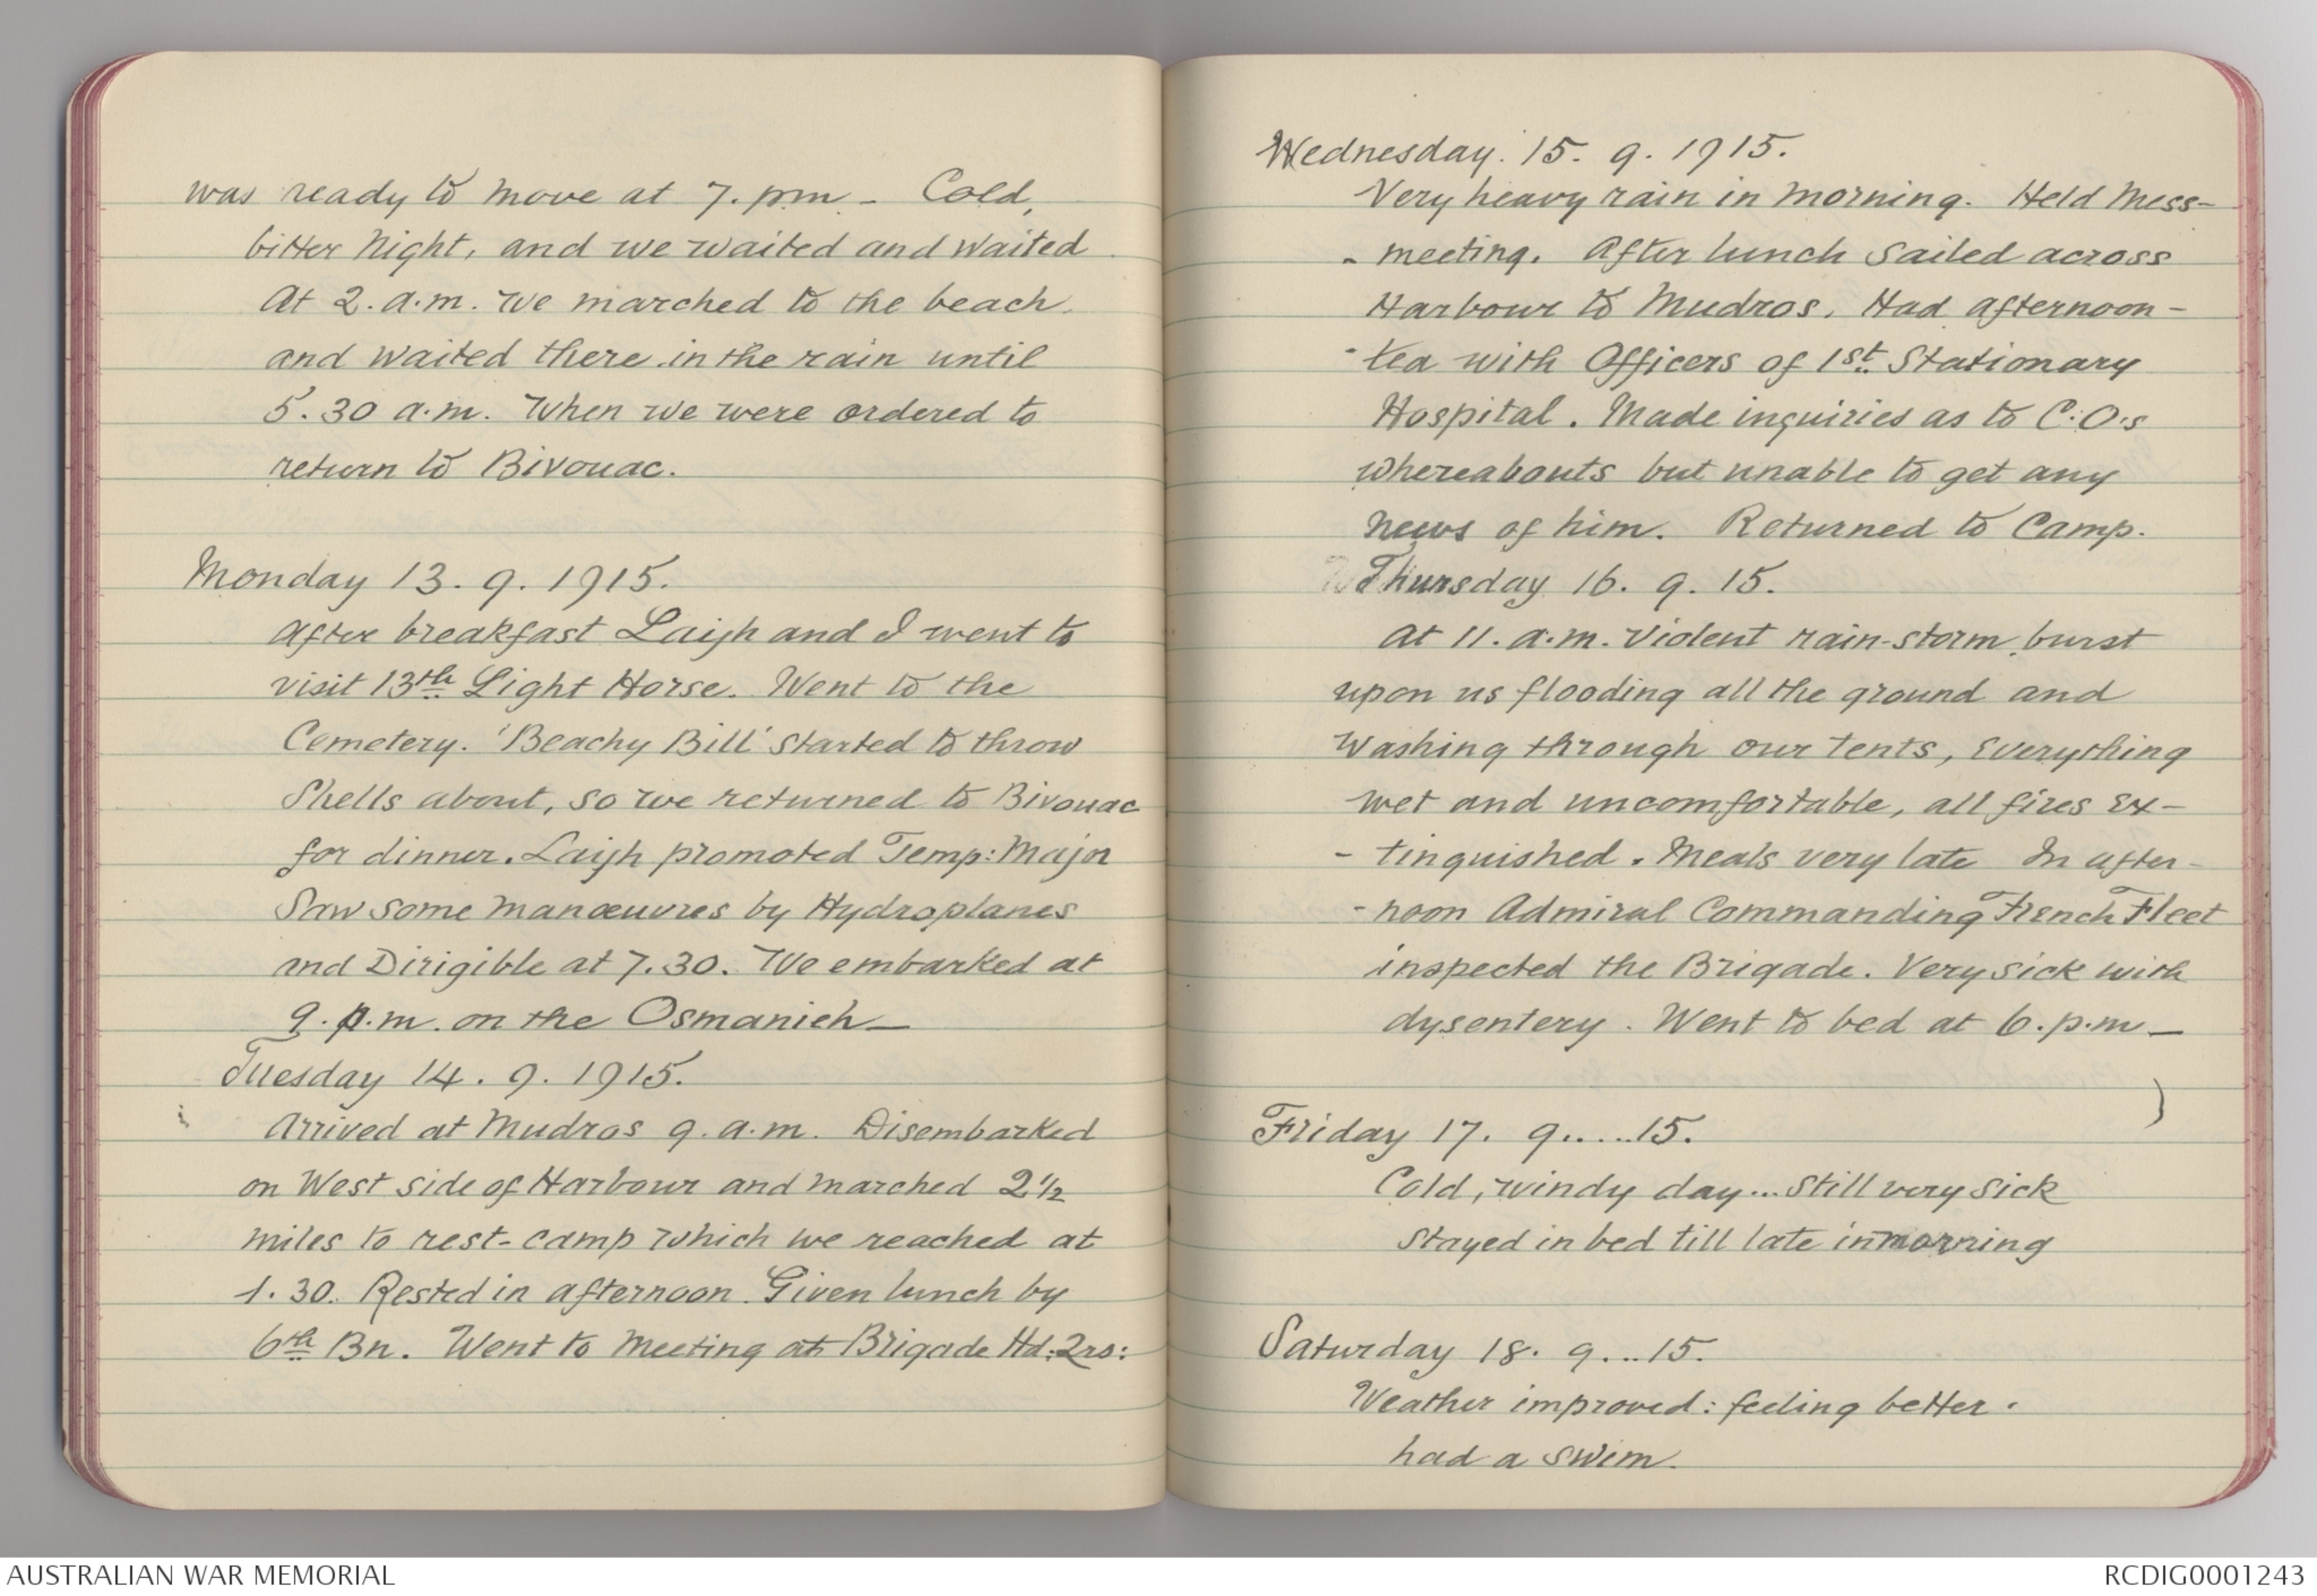 was ready to move at 7. pm - Cold,
bitter Night, and we waited and waited
At 2. a.m. we marched to the beach
and waited there in the rain until
5.30 a.m. When we were ordered to
return to Bivouac.
Monday 13. 9. 1915.
After breakfast Laigh and I went to
visit 13th Light Horse. Went to the
Cemetery. 'Beachy Bill' started to throw
Shells about, so we returned to Bivouac
for dinner. Laigh promoted Temp: Major
Saw some manœuvres by Hydroplanes
and Dirigible at 7.30. We embarked at
9. p.m. on the Osmanieh—
Tuesday 14. 9. 1915.
Arrived at Mudros 9. a.m. Disembarked
on West side of Harbour and marched 2½
miles to rest-camp which we reached at
1.30. Rested in afternoon. Given lunch by
6th Bn. Went to Meeting at Brigade Hd:Qrs:
Wednesday. 15. 9. 1915.
Very heavy rain in morning. Held Mess-
- meeting. After lunch sailed across
Harbour to Mudros. Had afternoon-
- tea with Officers of 1st Stationary
Hospital. Made inquiries as to C.O.s
whereabouts but unable to get any
news of him. Returned to Camp.
Thursday 16. 9. 15.
At 11. a.m. violent rain-storm burst
upon us flooding all the ground and
Washing through our tents, Everything
wet and uncomfortable, all fires ex-
- tinguished. Meals very late In after-
- noon Admiral Commanding French Fleet
inspected the Brigade. Very sick with
dysentery. Went to bed at 6. p.m—
Friday 17. 9.....15.
Cold, windy day... Still very sick
Stayed in bed till late in morning
Saturday 18. 9...15.
Weather improved: feeling better.
had a swim.
AUSTRALIAN WAR MEMORIAL
RCDIG0001243